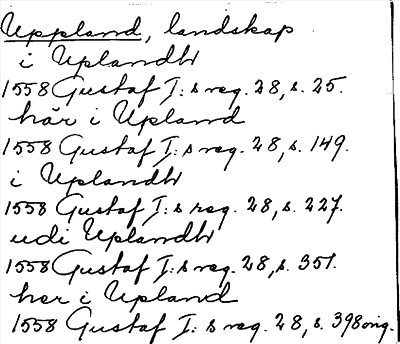 Uppland, landskap
i Uplandh
1558 Gustaf I:s reg. 28, s. 25.
här i Upland
1558 Gustaf I:s reg. 28, s. 149.
i Uplandh
1558 Gustaf I:s reg. 28, s. 227.
udi Uplandh
1558 Gustaf I:s reg. 28, s. 351.
her i Upland
1558 Gustaf I:s reg. 28, s. 398 orig.